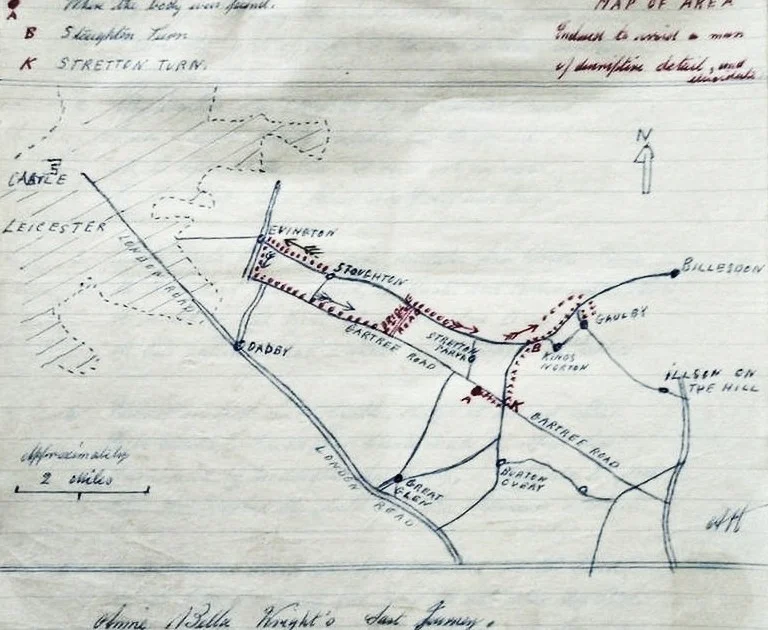 A Where the body was found.
B Stoughton Turn
K STRETTON TURN.
MAP OF AREA
Enclosed to assist a man
descriptive detail, and
N
CASTLE
LEICESTER
LONDON ROAD
EVINGTON
STOUGHTON
BILLESDON
GAULBY
BRIDLE
ROAD
GARTREE ROAD
STRETTON
PARVA
B
KINGS
NORTON
OADBY
ILLSON ON
THE HILL
A
K
GARTREE ROAD
Approximately
2 Miles
LONDON
ROAD
GREAT
GLEN
BURTON
OVERY
Annie Bella Wright's Last Journey.